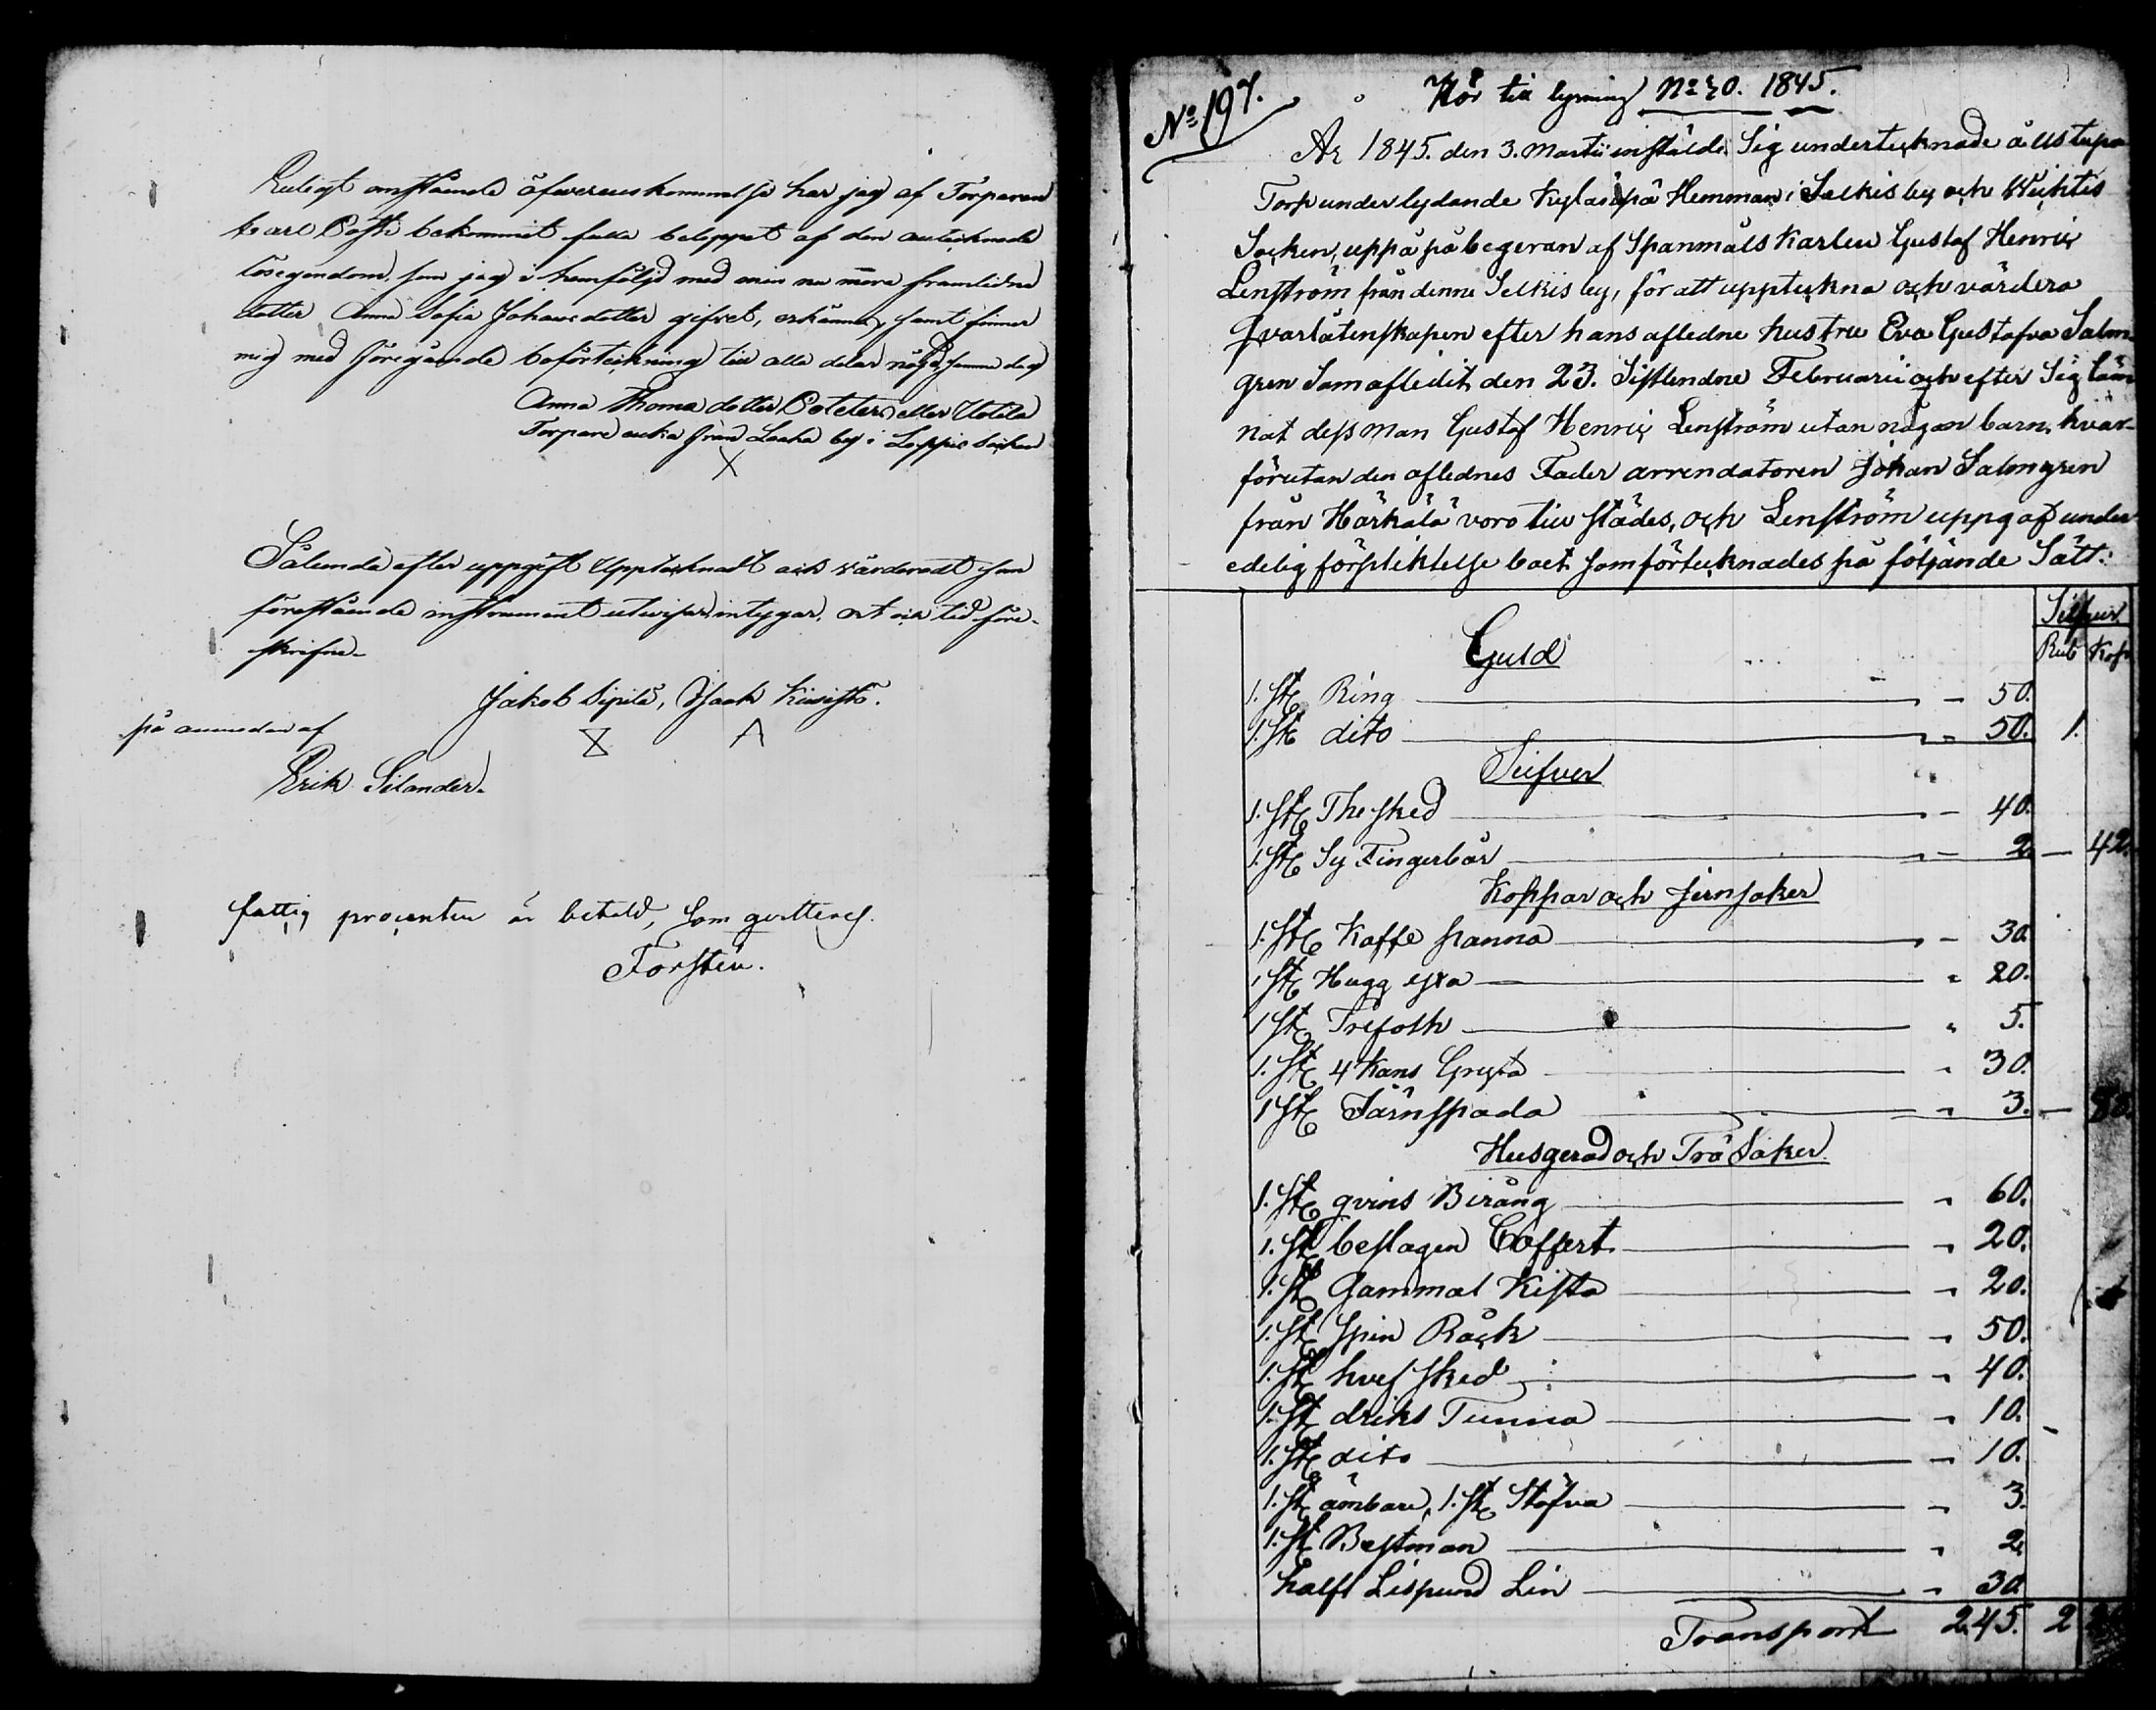 Enligt omstående öfverenskommelse har jag af Torparen
Carl Poski bekommit fulla beloppet af den antecknade
lösegendom, som jag i hemföljd med min nu mera framlidne
dotter Anna Sofia Johansdotter gifvet, erkänner, samt finner
mig med föregående boförteckning till alla delar nögd, samma dag
Anna Thomasdotter eller Uotila
Torpare enka från Looha by i Loppis Socken
X
Sålunda efter uppgift Upptecknadt och värderadt som
förestående instrument utvisar, intygar. ort och tid före-
skrifne.
Jakob Sipilä, Isaak Kivistö.
på anmodan af
Erik Silander.
fattig procenten är betald, som qvitteras.
Forstén.
No 197.
Hör till lysning No 20. 1845.
År 1845. den 3. Martii instälde Sig undertecknade å
Torp underlydande Kylänpä Hemman i Selkis by och Wichtis
Socken, uppå påbegeran af Spanmåls Karlen Gustaf Henric
Lenström från denne Selkis by, för att uppteckna och värdera
Qvarlåtenskapen efter hans aflednе hustru Eva Gustafva Salm-
gren Som afledit den 23. Sistlendne Februarii och efter Sig läm
nat dess man Gustaf Henric Lenström utan någon barn, hvar-
förutan den aflednes Fader arrendatoren Johan Salmgren
från Härkälä voro till städes, och Lenström uppgaf under
edelig förpliktelse boet som förtecknades på följande Sätt:
Silfver
Guld Rub Kop
1. St. Ring - 50.
1. St. dito " 50. 1.
Silfver
1. St. Thesked - 40.
1. St. Sy Fingerbår - 2. — 42.
Koppar och jernsaker
1. St. Kaffe panna - 30.
1 St. Hugg yxa " 20.
1 St. Trefoth " 5.
1. St. 4 Kans Gryta " 30.
1 St. Järnspada " 3. —
Husgerad och Trä Saker
1. St. qvins Birång " 60.
1. St. beslagen Coffert " 20.
1. St. Gammal Kista " 20.
1. St. Spin Råck " 50.
1. St. hvef sked " 40.
1. St. driks Tunna " 10.
1. St. dito " 10.
1. St. ämbare, 1. St. Stäfva " 3.
1. St. Bestman " 2.
halft Lispund Lin " 30.
Transport 245. 2